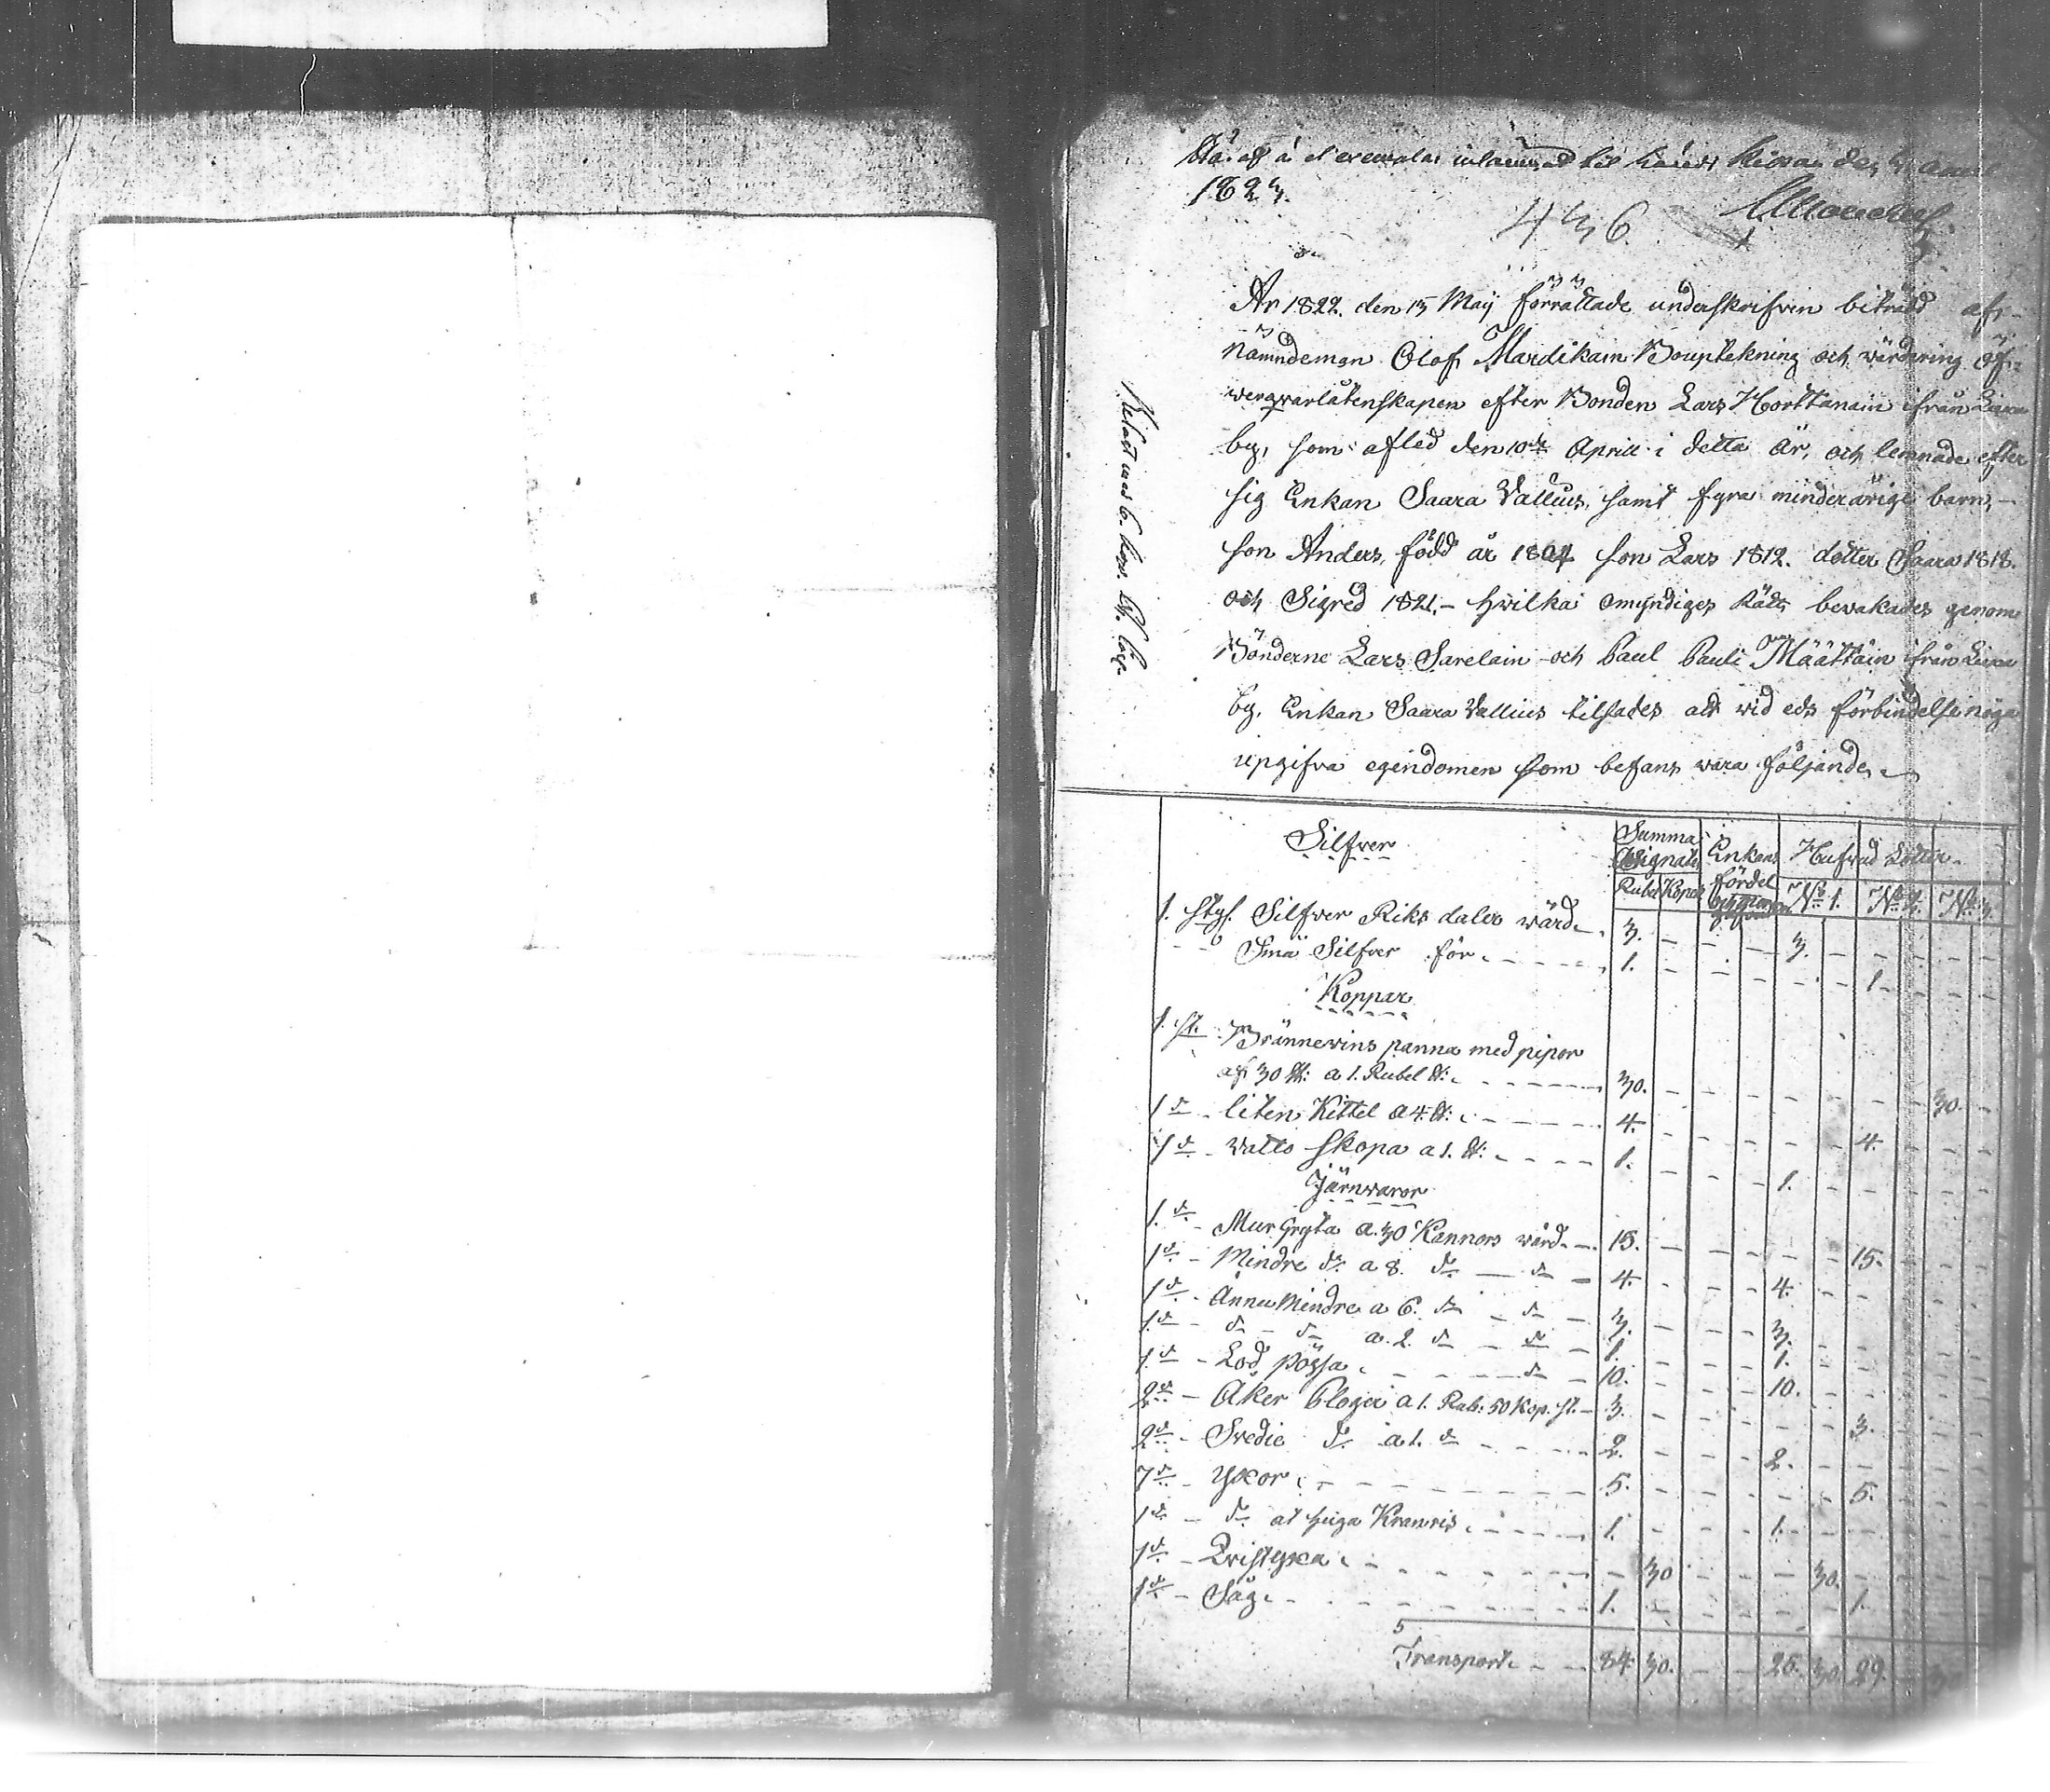 1823.
436
År 1822. den 13 Maij förrättade underskrifven biträdd af
nämndeman Olof Mardikain Bouptekning och wärdering öf-
werqvarlåtenskapen efter Bonden Lars Horttanain ifrån Liexa
by, som afled den 10de Aprill i detta år, och lemnade efter
sig Enkan Saara Vallius, samt fyra minderårige barn,
son Anders, född år 1804 son Lars 1812. dotter Saara 1818.
och Sigred 1821. hvilka omyndiges Rätt bevakades genom
Bönderne Lars Sarelain och Paul Pauli Määttäin ifrån Liexa
by, Enkan Saara Vallius tilsades att vid eds förbindelse noga
upgifva egendomen som befans vara följande
Silfver
Summa Enkans Hufvud Lotter
Assignats fördel
Rubel Kopek No 1. No 2. No 3.
1. styk. Silfver Riks daler värd 3. 3.
Små Silfver för 1. 1
Koppar
1. st. Brännevins panna med pipor
af 30 ℔: a 1. Rubel ℔: 30. 30.
1 do liten Kittel a 4. ℔: 4. 4.
1 do watto skopa a 1. ℔: 1. 1.
Järnvaror
1. do Mur Gryta a. 30 Kannors värd 15. 15.
1 do Mindre do a 8. do do 4. 4.
1 do Ännu Mindre a 6. do do 3. 3.
1. do do do a. 2. do do 1. 1.
1. do Lod bössa do 10. 10.
2 do Åker Plogar a 1. Rub: 50 Kop. st. 3. 3.
2 do Svedie do a 1. do 2. 2.
7 do yxor 5. 5.
1 do do at hugga 1. 1.
1 do Qvistyxa 30 30.
1 do Såg 1. 1.
Transport 84 30. 25. 30 29.